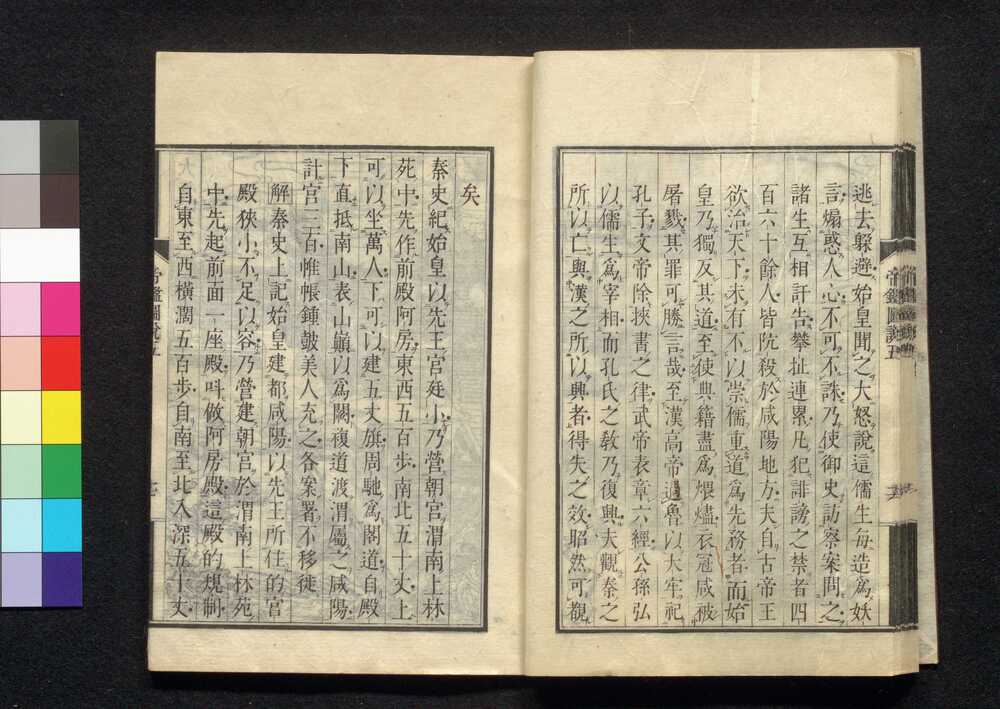 逃去躱避始皇聞之大怒說這儒生每造爲妖
言煽惑人心不可不誅乃使御史訪察案問之
諸生互相訐告攀扯連累凡犯誹謗之禁者四
百六十餘人皆阬殺於咸陽地方夫自古帝王
欲治天下未有不以崇儒重道爲先務者而始
皇乃獨反其道至使典籍盡爲煨燼衣冠咸被
屠戮其罪可勝言哉至漢高帝過魯以大牢祀
孔子文帝除挾書之律武帝表章六經公孫弘
以儒生爲宰相而孔氏之敎乃復興夫觀秦之
所以亡與漢之所以興者得失之效昭然可覩
矣
秦史紀始皇以先王宮廷小乃營朝宮渭南上林
苑中先作前殿阿房東西五百步南北五十丈上
可以坐萬人下可以建五丈旗周馳爲閣道自殿
下直抵南山表山巔以爲闕複道渡渭屬之咸陽
計宮三百帷帳鍾鼓美人充之各案署不移徙
解秦史上記始皇建都咸陽以先王所住的宮
殿狹小不足以容乃營建朝宮於渭南上林苑
中先起前面一座殿呌做阿房殿這殿的規制
自東至西橫濶五百步自南至北入深五十丈
帝鑑圖說五